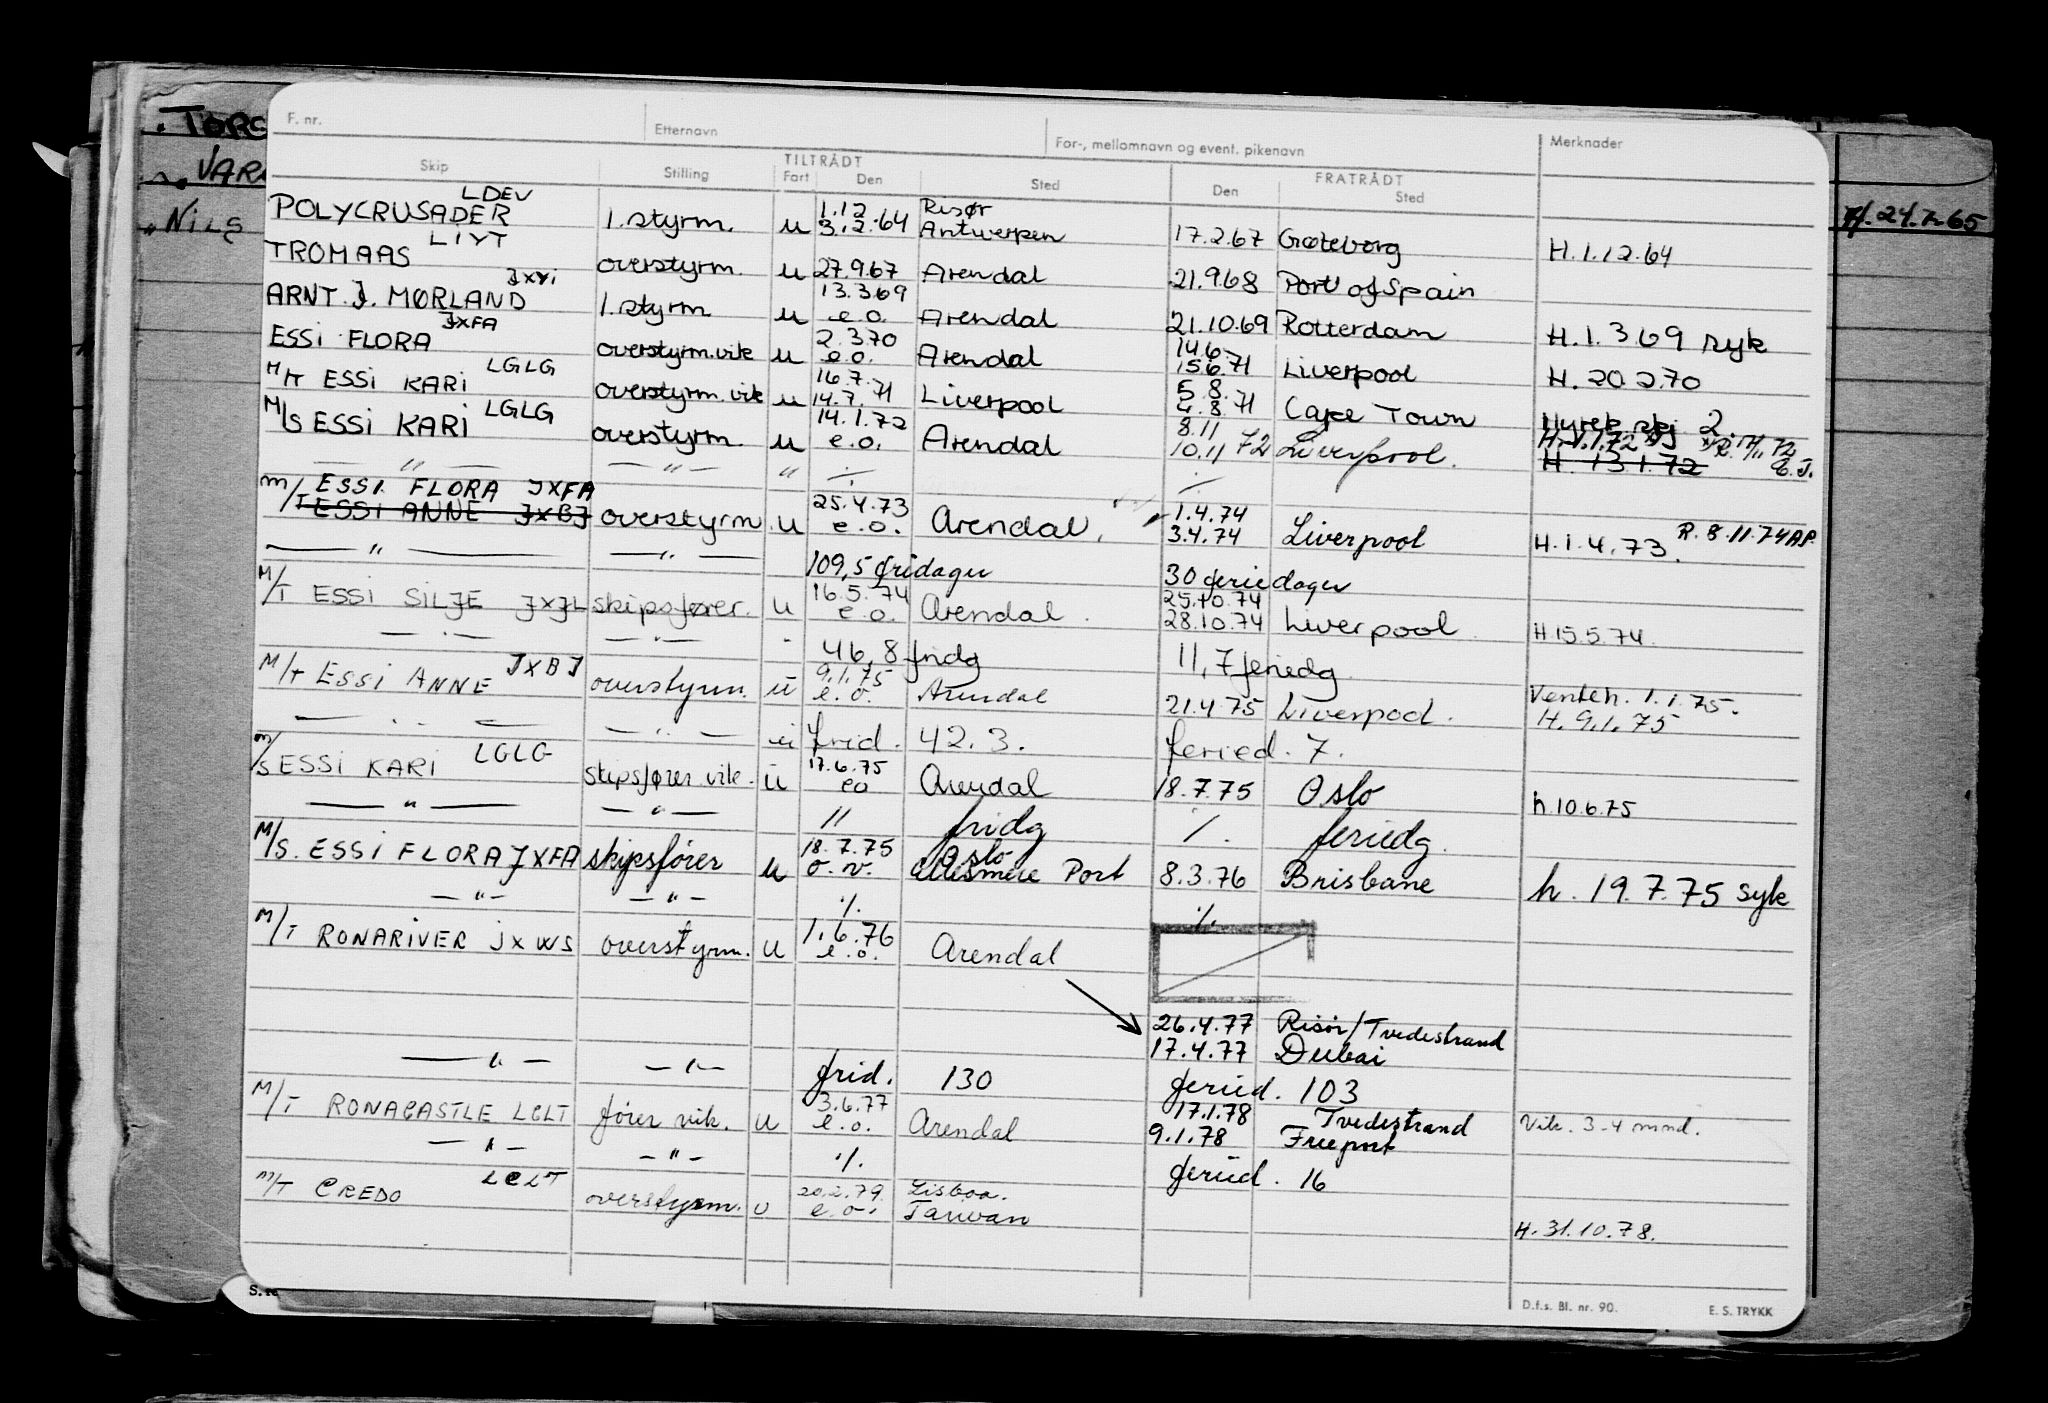 F. nr. Etternavn For-, mellomnavn og event. pikenavn Merknader
Skip Stilling TILTRÅDT Fart Den Sted FRATRÅDT Den Sted
VAR
"NILS H. 24.7.65
LDEV 1.12 Risør
POLYCRUSADER 1.styrm. u 3.12.64 Antwerpen 17.2.67 Gøteborg H.1.12.64
LIYT
TROMAAS overstyrm. u 27.9.67 Arendal 21.9.68 Port of Spain
13.3.69
ARNT. J. MØRLAND 1.styrm u e.o. Arendal 21.10.69 Rotterdam H.1.3.69 syk
JXFA 2.3.70 14.6
ESSI FLORA overstyrm.vik u e.o. Arendal 15.6.71 Liverpool H.20.2.70
LGLG 16.7. 5.8.
M/T ESSI KARI overstyrm.vik u 14.7.71 Liverpool 4.8.71 Cape Town
LGLG 14.1.72 8.11
M/S ESSI KARI overstyrm. u e.o. Arendal 10.11 72 Liverpool. H. 13.1.72
— " — — " — " ./. ./.
ESSI FLORA JXFA 25.4.73 1.4.74
M/T ESSI ANNE JXBJ overstyrm. u e.o. Arendal. 3.4.74 Liverpool H.1.4.73. R. 8.11.74 AP.
— " — — " — 109,5 fridager 30 feriedager
16.5.74 25.10.74
M/T ESSI SILJE JXJL skipsfører. u e.o. Arendal. 28.10.74 Liverpool H 15.5.74.
— " — — " — " 46,8 fridg 11,7 feriedg
9.1.75 Venteh. 1.1.75.
M/T ESSI ANNE JXBJ overstyrm. u e.o. Arendal 21.4.75 Liverpool. H. 9.1.75
— " — — " — frid. 42.3. feried. 7.
LGLG 17.6.75
M/S ESSI KARI skipsfører vik. u eo Arendal 18.7.75 Oslo h.10.6.75
— " — — " — 11 fridg ./. feriedg.
18.7.75 Oslo
M/S. ESSI FLORA JXFA skipsfører u o.v. Ellesmere Port 8.3.76 Brisbane h. 19.7.75 syk
— " — — " — ./. ./.
1.6.76
M/T RONARIVER JXWS overstyrm. u e.o. Arendal
26.4.77 Risør/Tvedestrand
17.4.77 Dubai
— " — — " — frid. 130 feried. 103
3.6.77 17.1.78 Tvedestrand
M/T RONACASTLE LCLT fører vik. u e.o. Arendal 9.1.78 Freeport Vik. 3-4 mnd.
— " — — " — ./. feried. 16
LCLT 20.2.79. Lisboa.
M/T CREDO overstyrm. u e.o. Taiwan H. 31.10.78.
D.f.s. Bl. nr. 90. E. S. TRYKK